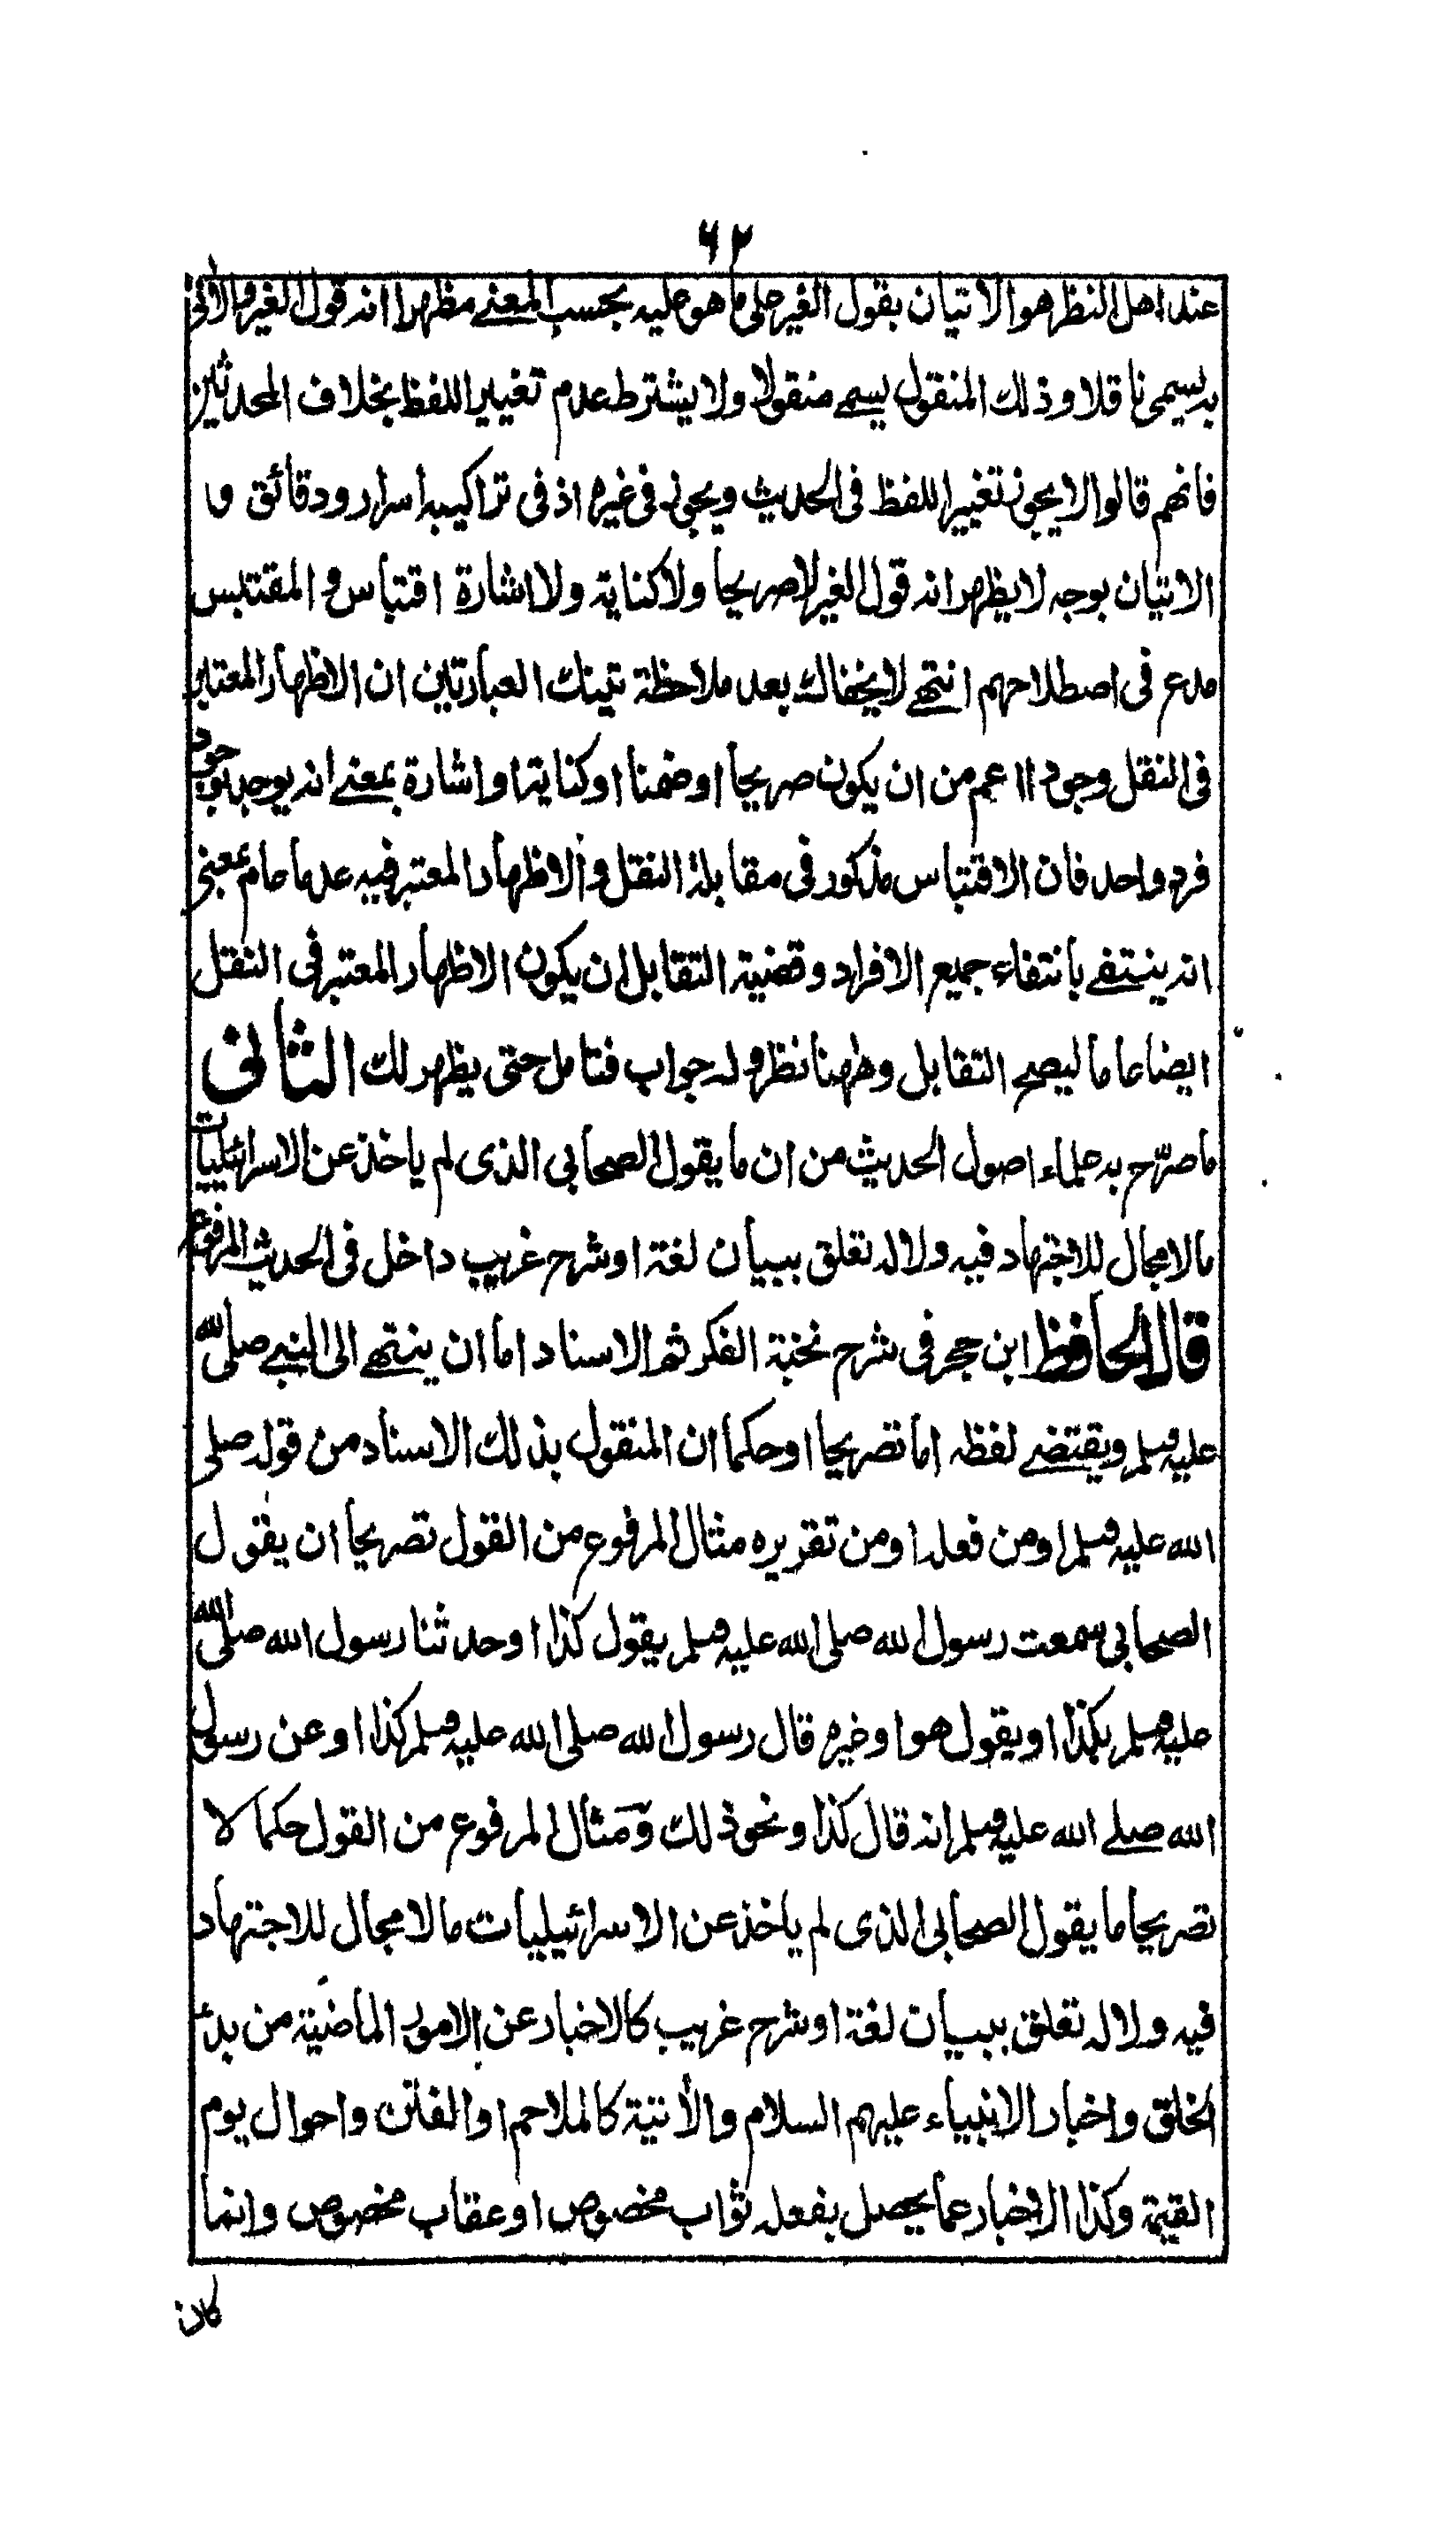 ٦٢
عند اهل النظر هو الاتيان بقول الغير على ما هو عليه بحسب المعنى مظهرا انه قول الغير والاتى
به يسمى ناقلا وذلك المنقول يسمى منقولا ولا يشترط عدم تغيير اللفظ بخلاف المحدثين
فانهم قالوا لا يجوز تغيير اللفظ فى الحديث ويجوز فى غيره اذ فى تراكيبه اسرار ودقائق و
الاتيان بوجه لا يظهر انه قول الغير لا صريحا ولا كناية ولا اشارة اقتباس و المقتبس
مدع فى اصطلاحهم انتهى لا يخفاك بعد ملاحظة تينك العبارتين ان الاظهار المعتبر
فى النقل وجودا اعم من ان يكون صريحا او ضمنا او كناية او اشارة بمعنى انه يوجد بوجود
فرد واحد فان الاقتباس مذكور فى مقابلة النقل و الاظهار المعتبر فيه عدما عام بمعنى
انه ينتفى بانتفاء جميع الافراد وقضية التقابل ان يكون الاظهار المعتبر فى النقل
ايضا عاما ليصح التقابل وههنا نظر وله جواب فتامل حتى يظهر لك الثانى
ما صرّح به علماء اصول الحديث من ان ما يقول الصحابى الذى لم ياخذ عن الاسرائيليات
مالا مجال للاجتهاد فيه ولا له تعلق ببيان لغة او شرح غريب داخل فى الحديث المرفوع
قال الحافظ ابن حجر فى شرح نخبة الفكر ثم الاسناد اما ان ينتهى الى النبى صلى الله
عليه وسلم ويقتضى لفظه اما تصريحا او حكما ان المنقول بذلك الاسناد من قوله صلى
الله عليه وسلم او من فعله او من تقريره مثال المرفوع من القول تصريحا ان يقول
الصحابى سمعت رسول الله صلى الله عليه وسلم يقول كذا او حدثنا رسول الله صلى الله
عليه وسلم بكذا او يقول هو او غيره قال رسول الله صلى الله عليه وسلم كذا او عن رسول
الله صلى الله عليه وسلم انه قال كذا ونحو ذلك ومثال المرفوع من القول حكما لا
تصريحا ما يقول الصحابى الذى لم ياخذ عن الاسرائيليات مالا مجال للاجتهاد
فيه ولا له تعلق ببيان لغة او شرح غريب كالاخبار عن الامور الماضية من بدء
الخلق واخبار الانبياء عليهم السلام والأتية كالملاحم او الفتن واحوال يوم
القيمة وكذا الاخبار عما يحصل بفعله ثواب مخصوص او عقاب مخصوص وانما
كان